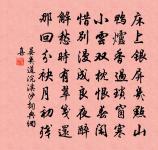 床上銀屏幾點山
鴨爐香過瑣窗寒
小雲雙枕恨春閑
惜別漫成良夜醉
解愁時有翠箋還
那回分袂月初殘
晏幾道浣溪沙詞典網